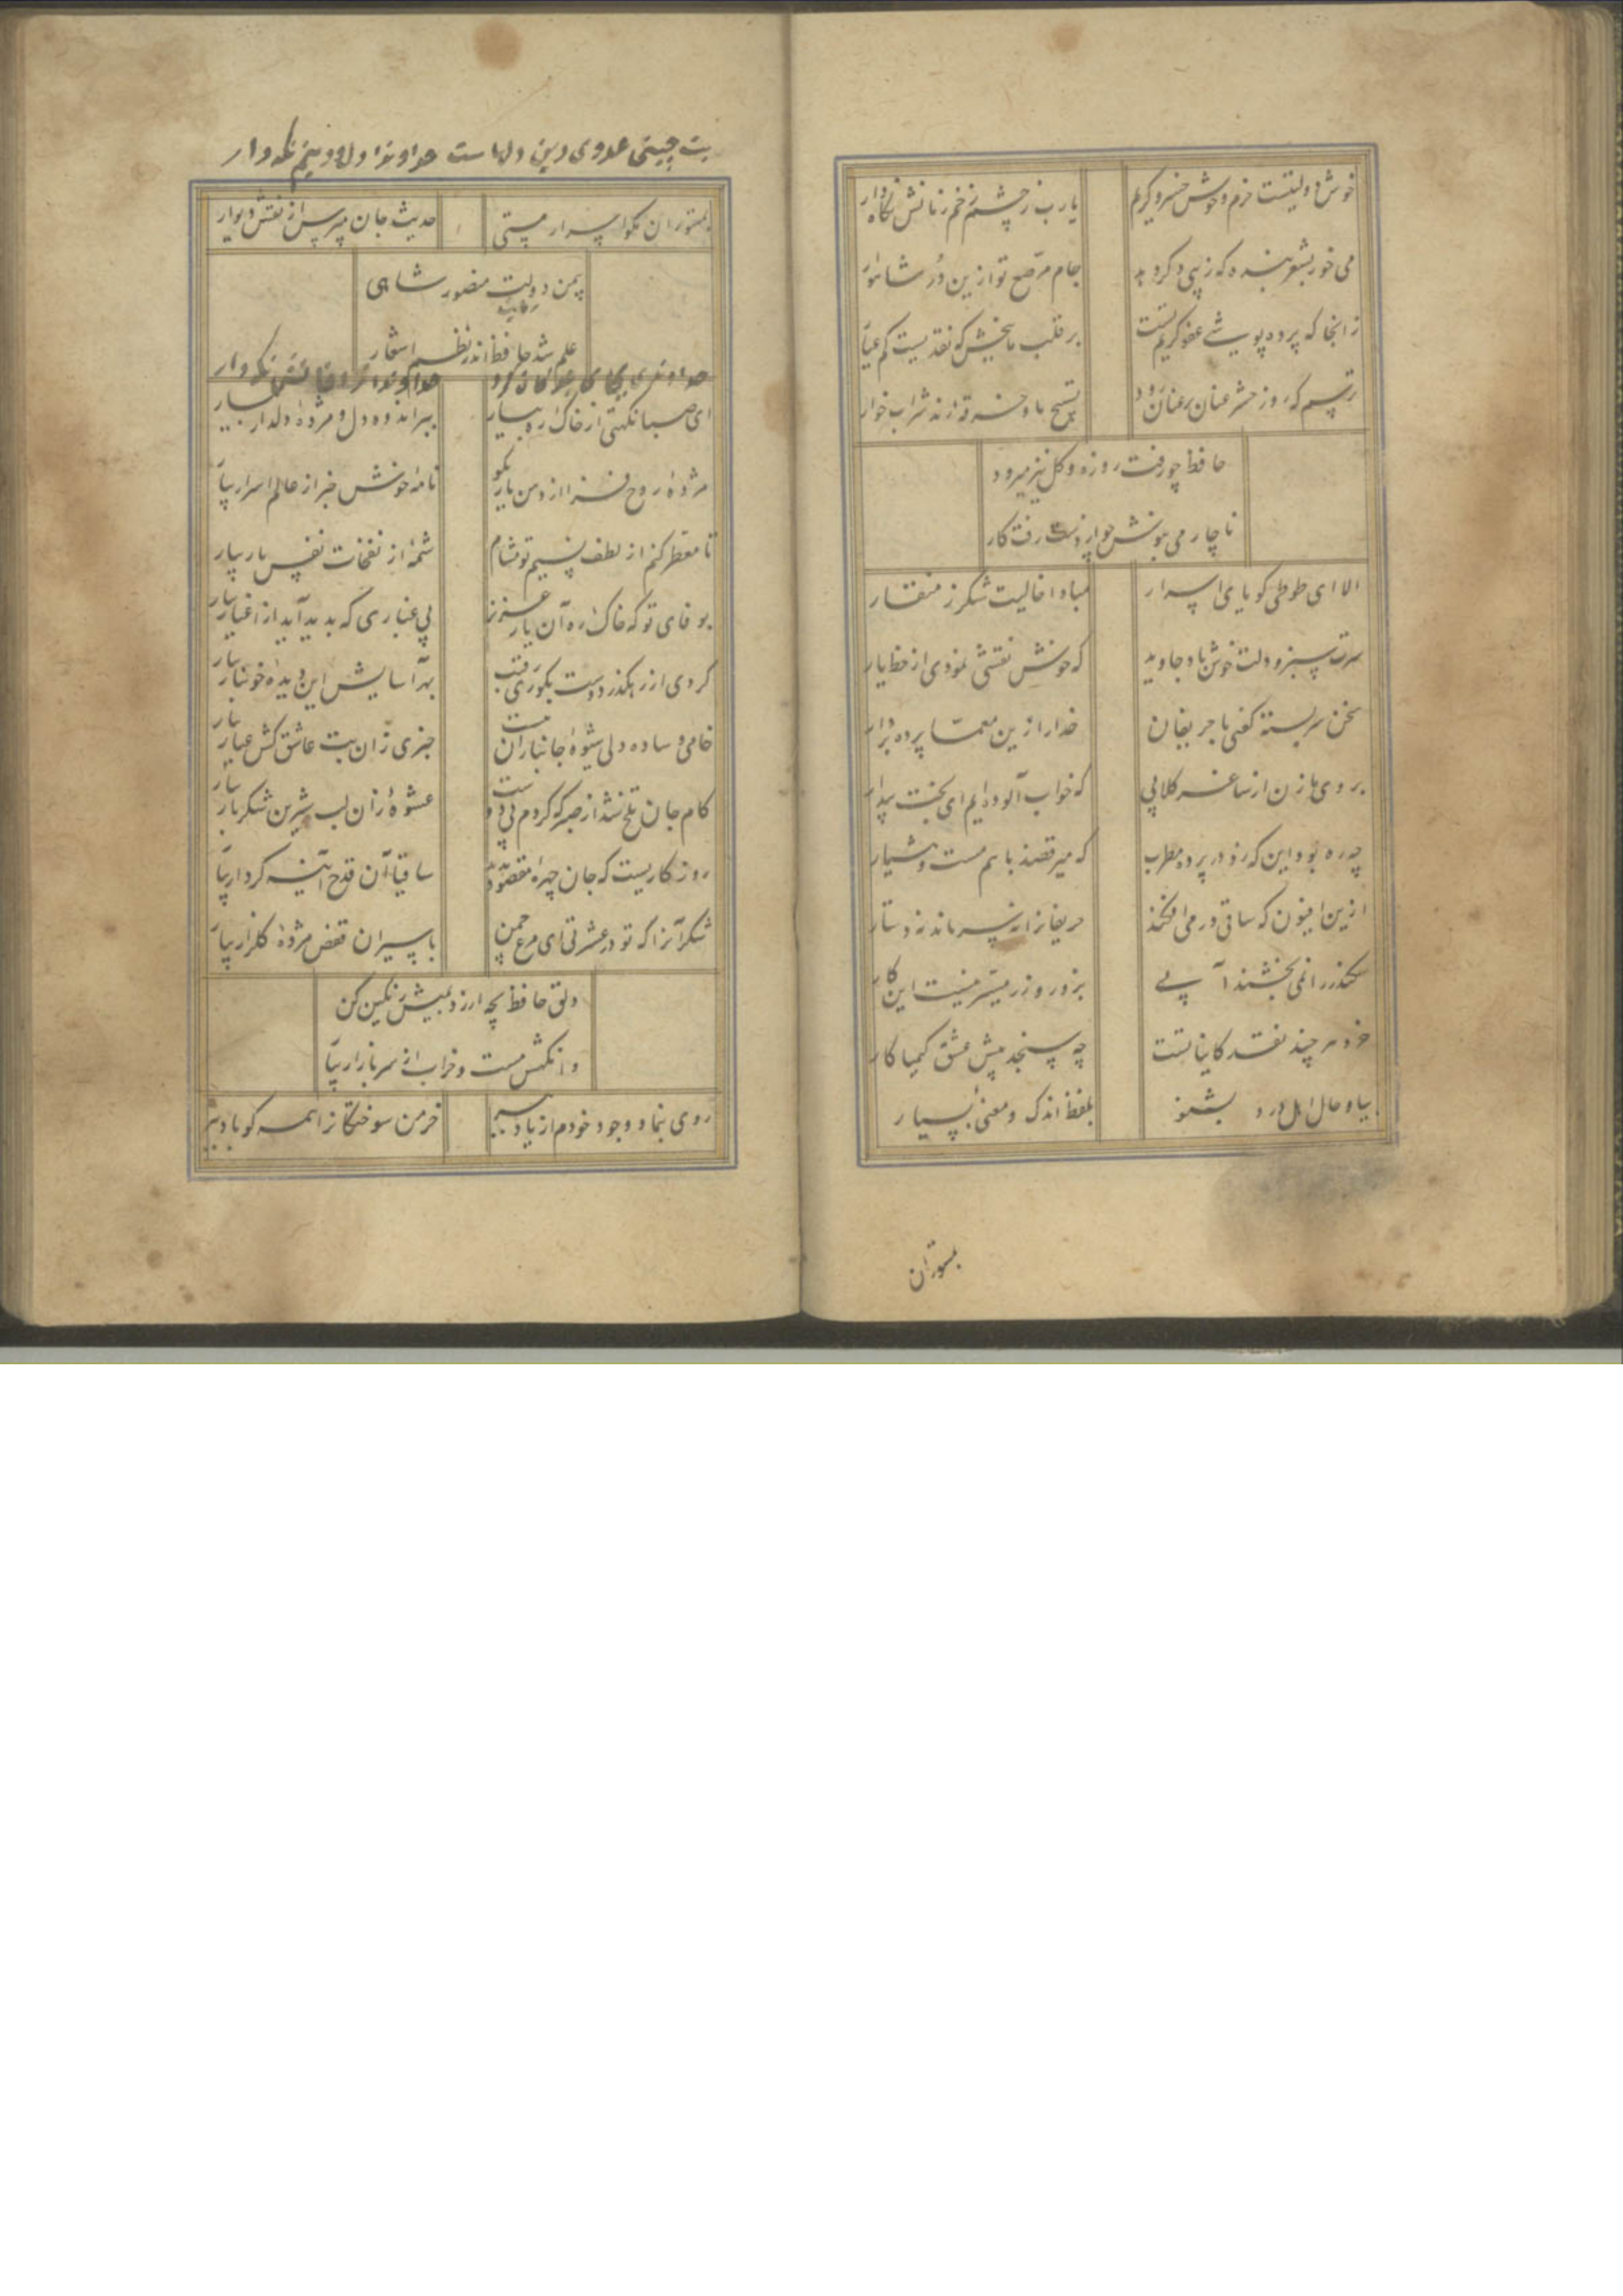 خوش دولتیست خرم و خوش خسرو کریم یا رب ز چشم زخم زمانش نگاه دار
می خور بشعر بنده که زیبی دگر دهد جام مرصع تو ازین در شاهوار
زانجا که پرده پوشی عفو کریم تست بر قلب ما ببخش که نقدیست کم عیار
ترسم که روز حشر عنان بر عنان رود تسبیح ما و خرقه رند شراب خوار
حافظ چو رفت روزه و گل نیز میرود
ناچار می بنوش چو از دست رفت کار
الا ای طوطی گویای اسرار مبادا خالیت شکر ز منقار
سرت سبز و دلت خوش باد جاوید که خوش نقشی نمودی از خط یار
سخن سربسته گفتی با حریفان خدا را زین معما پرده بردار
بروی ما زن از ساغر گلابی که خواب آلوده ایم ای بخت بیدار
چه ره بود این که زد در پرده مطرب که میرقصند با هم مست و هشیار
ازین افیون که ساقی در می افکند حریفانرا نه سر ماند نه دستار
سکندر را نمی بخشند آبی بزور و زر میسر نیست این کار
خرد هر چند نقد کایناتست چه سنجد پیش عشق کیمیا کار
بیا و حال اهل درد بشنو بلفظ اندک و معنی بسیار
بمستوران
بت چینی عدوی دین و دلهاست خداوندا دل و دینم نگه دار
بمستوران مگو اسرار مستی حدیث جان مپرس از نقش دیوار
بیمن دولت منصور شاهی
علم شد حافظ اندر نظم اشعار
خداوندی بجای بندگان کرد خداوندا ز آفاتش نگه دار
ای صبا نکهتی از خاک ره یار بیار ببر اندوه دل و مژده دلدار بیار
نکته روح فزا از دهن یار بگو نامه خوش خبر از عالم اسرار بیار
تا معطر کنم از لطف نسیم تو مشام شمه از نفحات نفس یار بیار
بوفای تو که خاک ره آن یار عزیز بی غباری که پدید آید از اغیار بیار
گردی از رهگذر دوست بکوری رقیب بهر آسایش این دیده خونبار بیار
خامی و ساده دلی شیوه جانبازان نیست خبری زان بت عاشق کش عیار بیار
کام جان تلخ شد از صبر که کردم بی دوست عشوه زان لب شیرین شکربار بیار
روزگاریست که جان چهره مقصود ندید ساقیا آن قدح آینه کردار بیار
شکر آنرا که تو در عشرتی ای مرغ چمن باسیران قفس مژده گلزار بیار
دلق حافظ بچه ارزد بمیش رنگین کن
وانگهش مست و خراب از سر بازار بیار
روی بنما و وجود خودم از یاد ببر خرمن سوختگانرا همه گو باد ببر